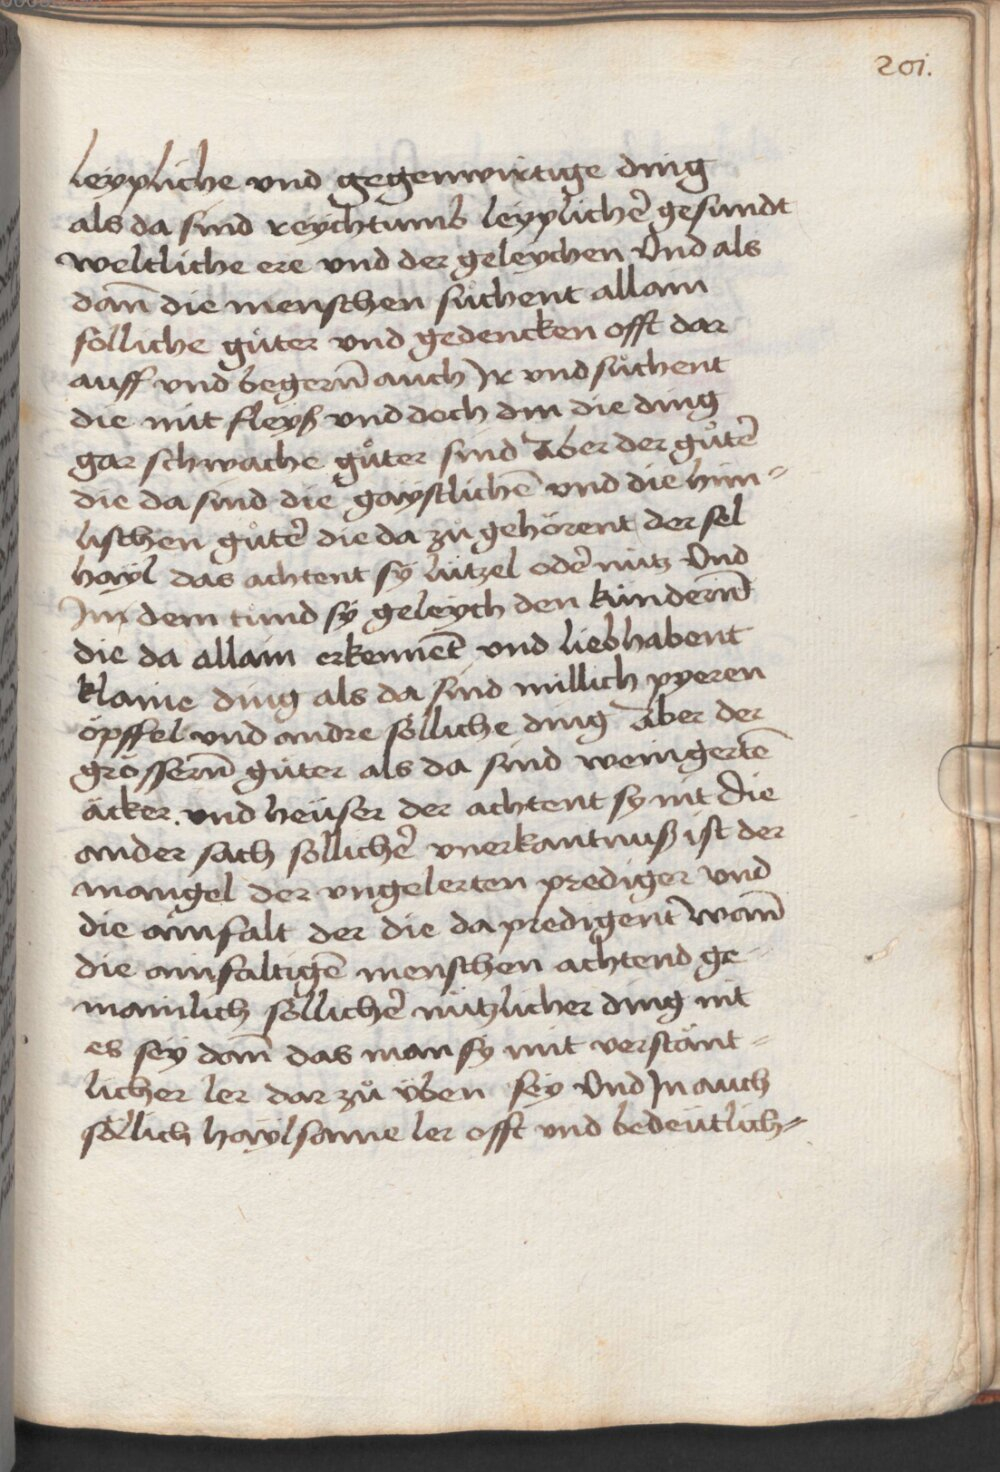 201.
leypliche vnd gegenwirtige ding
als da sind reychtumb leyplichẽ gesundt
weltliche ere vnd der geleychen Vnd als
dañ die menschen sůchent allain
sölliche gůter vnd gedencken offt dar
auff vnd begerñ auch Ir vnd sůchent
die mit fleyß vnd doch die ding
gar schwache gůter sind Aber der gůtẽ
die da sind die gaystlichẽ vnd die him=
lischen gůtẽ die da zů gehörent der sel
hayl das achtent sy lützel odẽ nütz Vnd
Im dem tund sy geleych den kinderñ
die da allain erkennẽt vnd liebhabent
klaine ding als da sind millich pyeren
öpffel vnd andre sölliche ding Aber der
grösserñ gůter als da sind weingertẽ
äcker. vnd heüser der achtent sy nit Die
ander sach söllichẽ vnerkantnuß ist der
mangel der vngelerten prediger Vnd
die ainfalt der die da predigent Wañ
die ainfaltigẽ menschen achtend ge
mainlich söllichẽ nützlicher ding nit
es sey dañ das man sy mit verstänt=
licher ler dar zů üben sey Vnd In auch
söllich haylsame ler offt vnd bedeütlich=